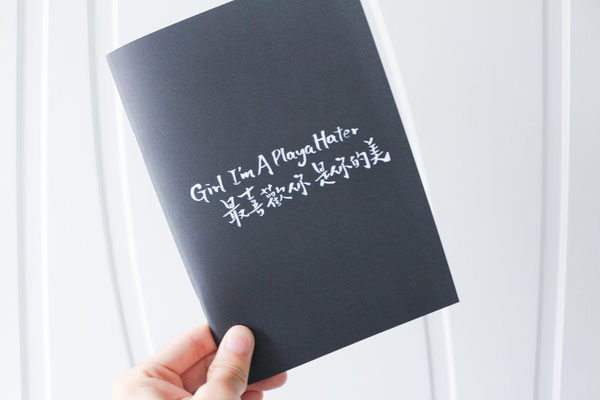 Girl I'm A Playa Hater
最喜歡你 是你的美